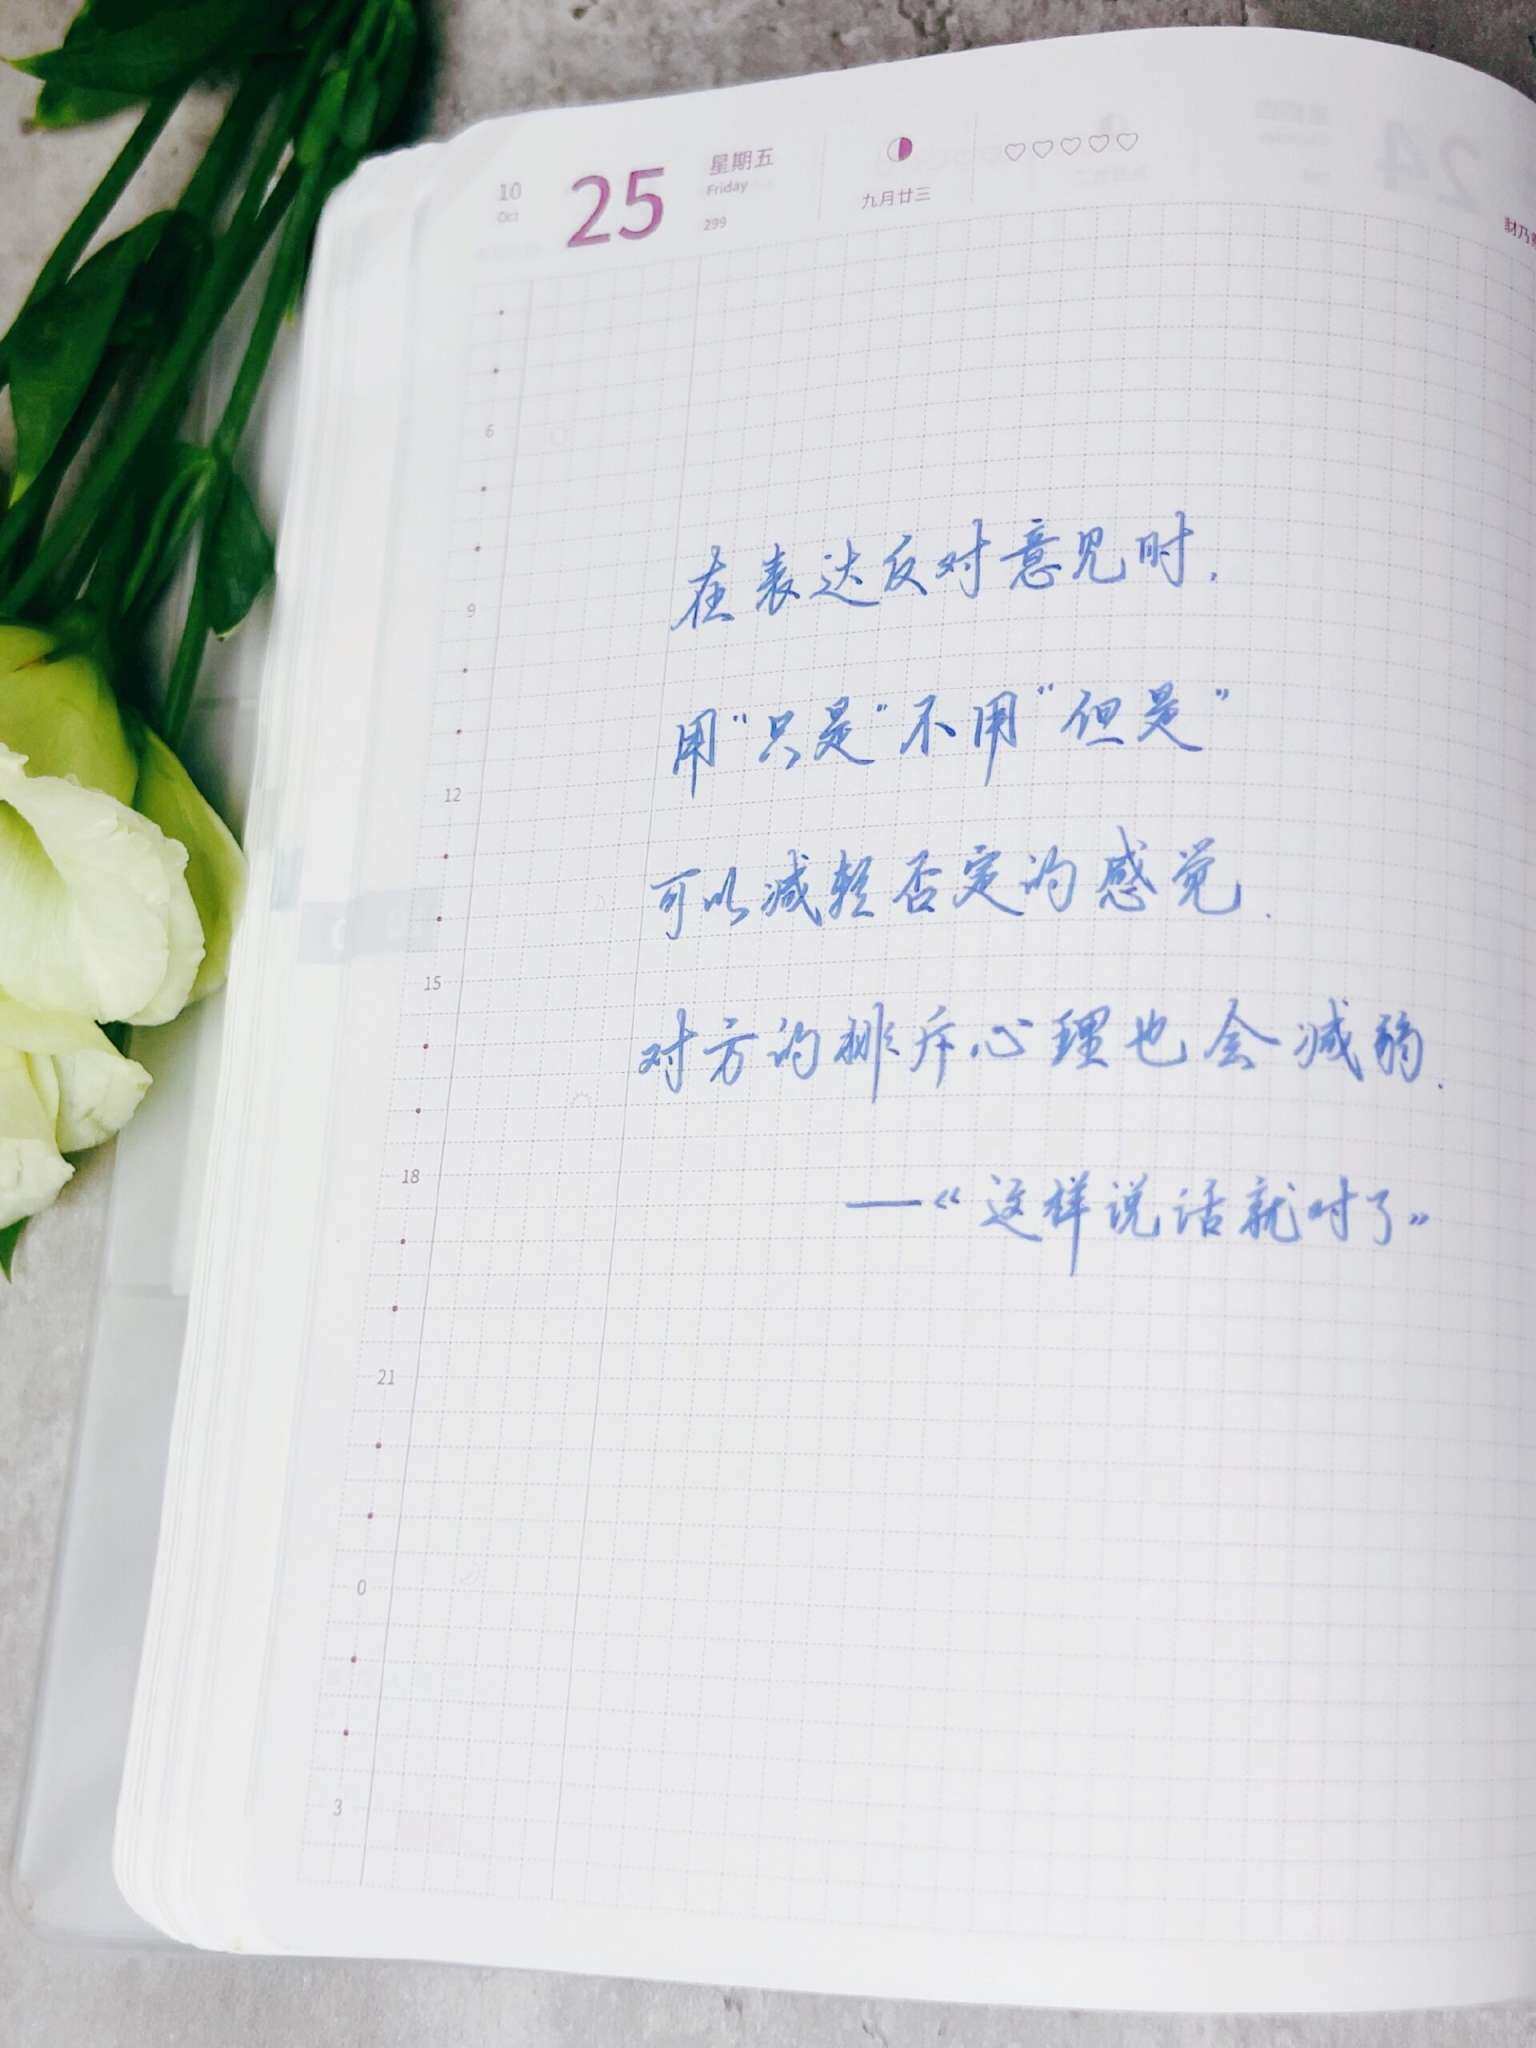 10
Oct
25
星期五
Friday
299
九月廿三
6
9
12
15
18
21
0
3
在表达反对意见时,
用"只是"不用"但是"
可以减轻否定的感觉.
对方的排斥心理也会减弱.
—《这样说话就对了》